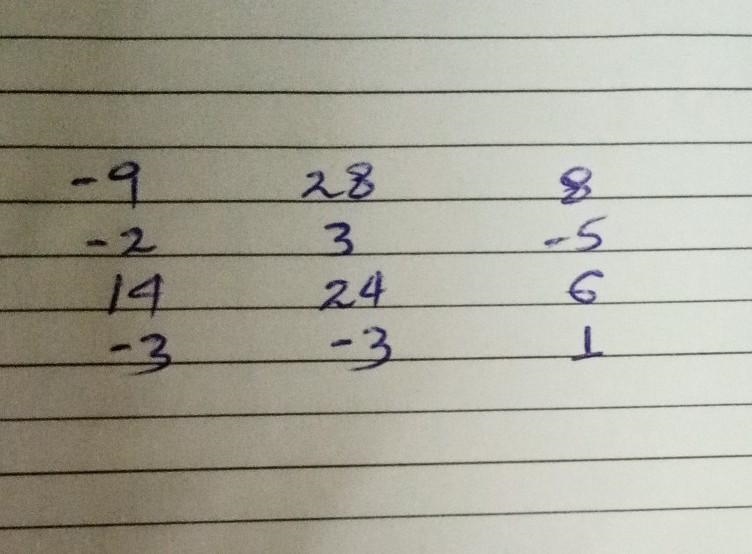 -9 28 8
-2 3 -5
14 24 6
-3 -3 1